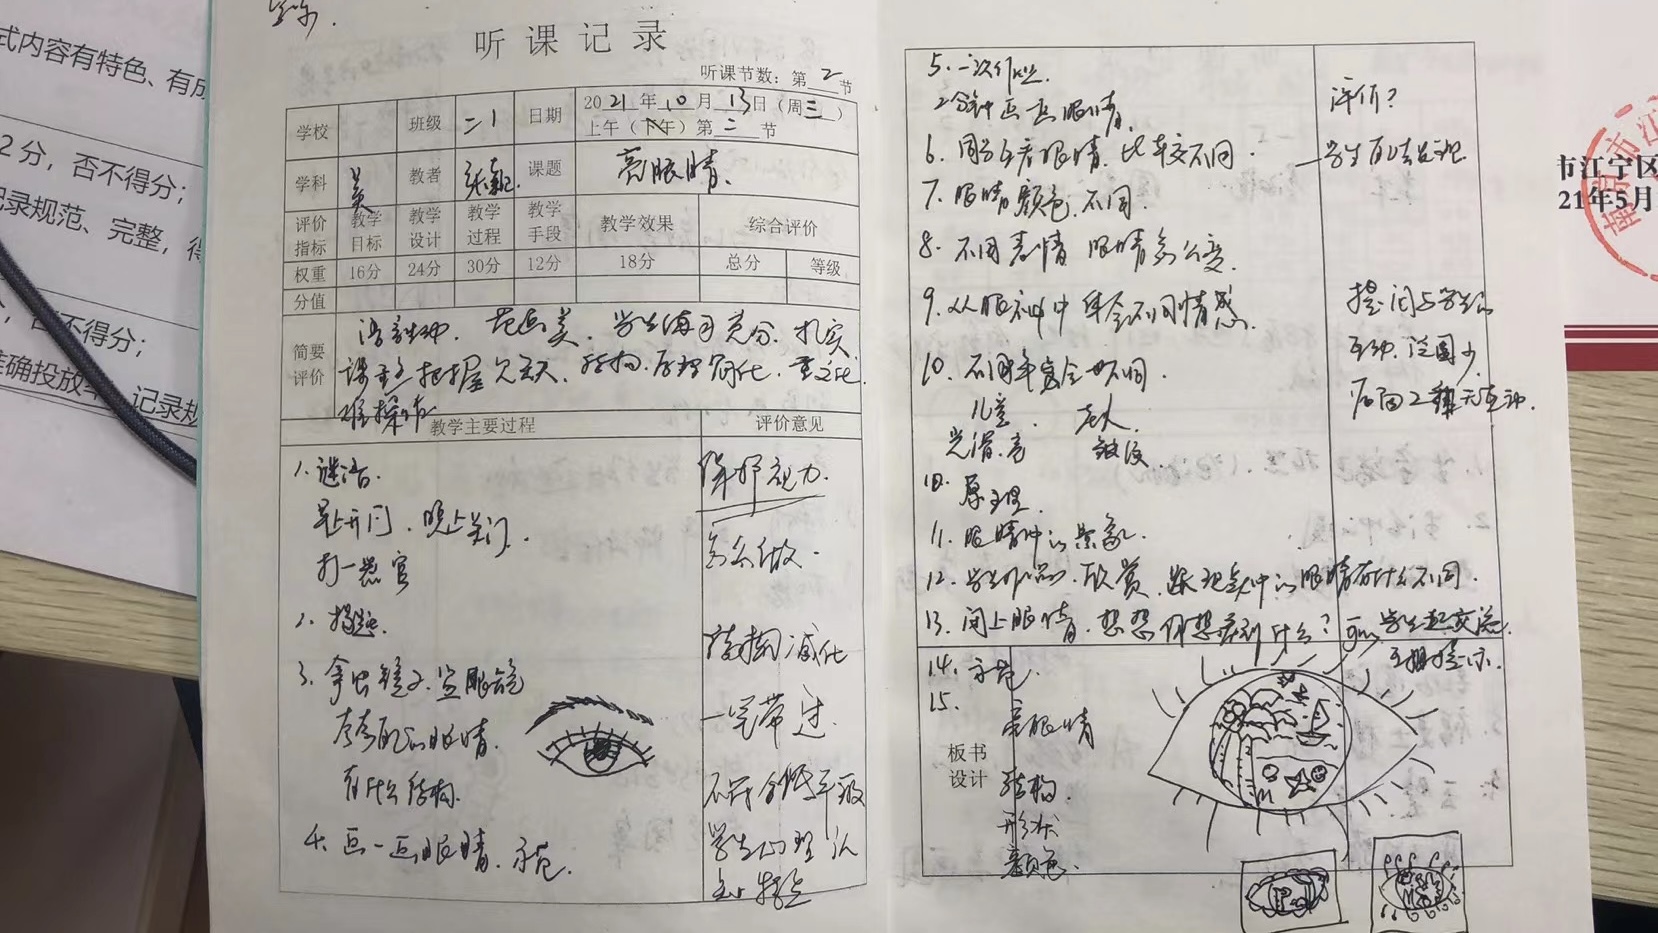 式内容有特色、有成
2分，否不得分；
记录规范、完整，得
不得分；
准确投放
记录规
听课记录
听课节数：第2节
学校
班级
二1
日期
2021年10月13日（周三）
上午（下午）第二节
学科
美
教者
张
课题
亮眼睛.
评价指标
教学目标
教学设计
教学过程
教学手段
教学效果
综合评价
权重
16分
24分
30分
12分
18分
总分
等级
分值
简要评价
范画美. 学生练习充分. 扎实
把握欠
教学主要过程
评价意见
1. 谜语.
早上开门. 晚上关门.
打一器官
2. 揭题.
3. 拿出镜子.
看看自己的眼睛.
有什么结构.
4. 画一画眼睛. 示范.
保护视力.
怎么做.
结构简化
一笔带过.
不符合低年级
学生心理认
知特点
5. 二次作业.
2分钟画画眼睛.
6. 同学互看眼睛. 比较不同.
7. 眼睛颜色不同.
8. 不同表情 眼睛怎么变.
9. 从眼神中体会不同情感.
10. 不同年龄会也不同.
儿童. 老人.
光滑.亮 皱纹.
10. 原理.
11. 眼睛中的景象.
12. 学生作品. 欣赏. 眼睛有什么不同.
13. 闭上眼睛. 想想你想看到什么?
学生交流.
14. 示范.
15.
评价?
学生
提问与学生的
互动. 范围少.
后面2排无互动.
板书设计
亮眼睛
结构.
形状
颜色.
市江宁区
21年5月
南京市江